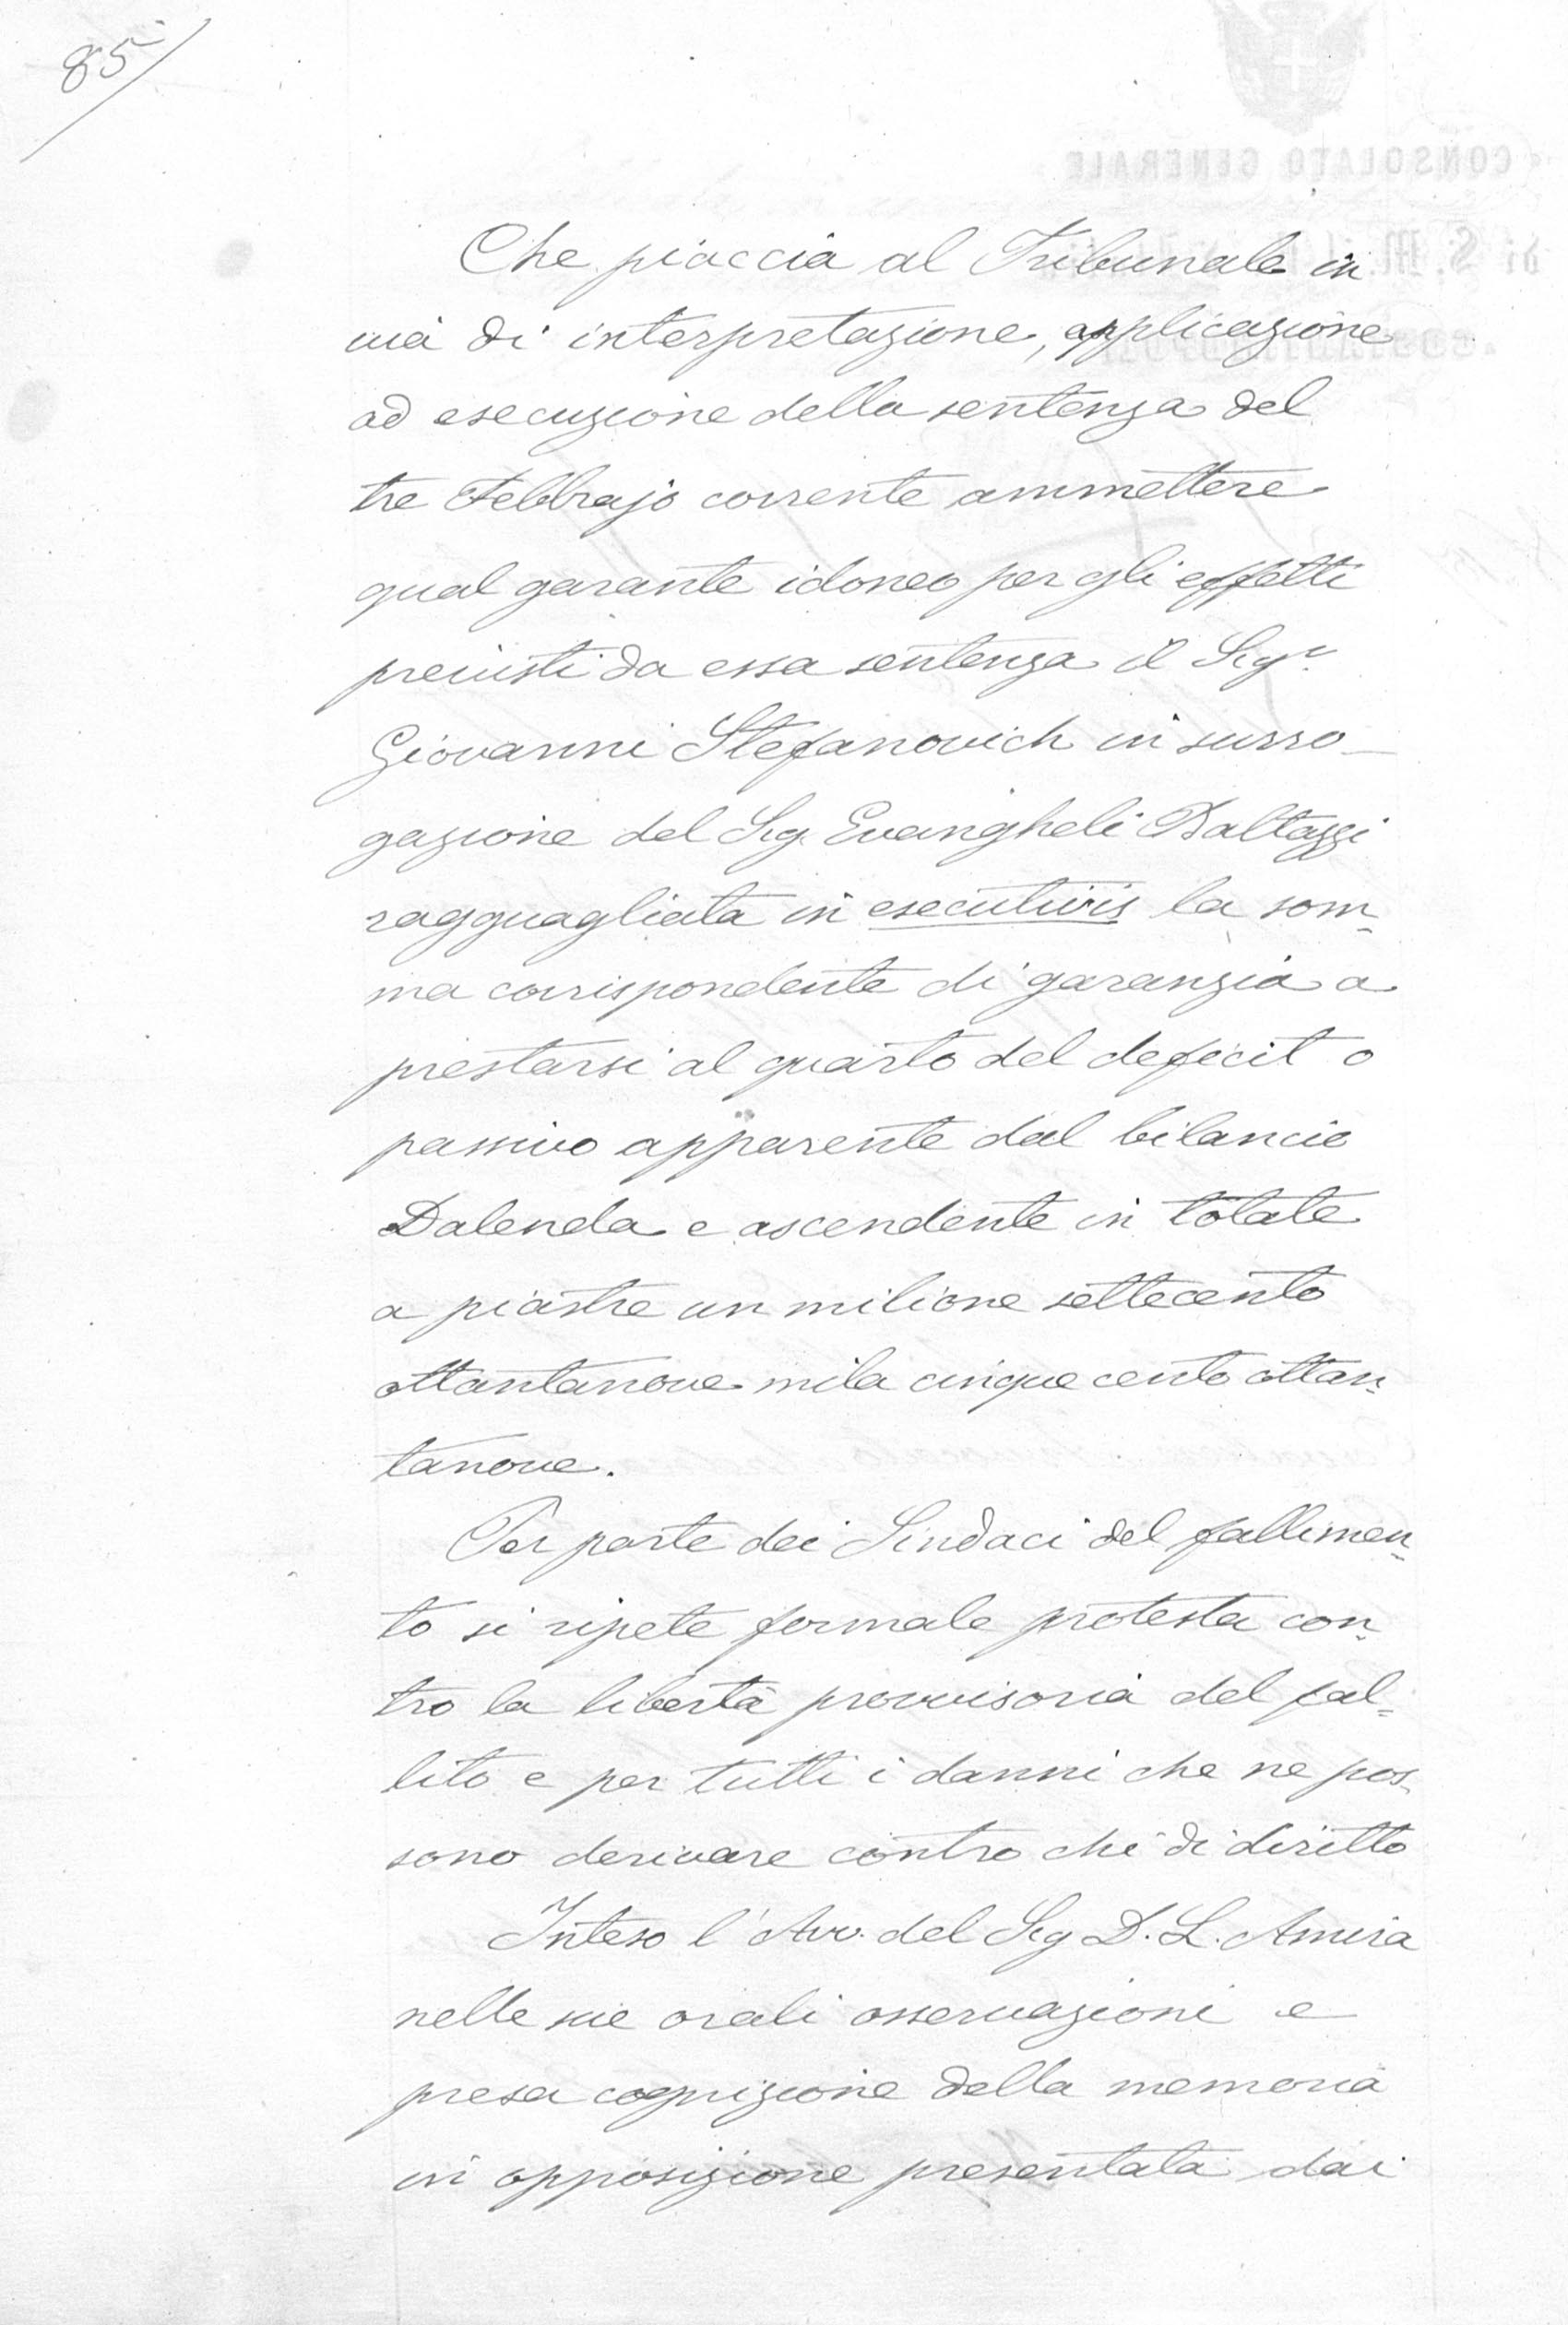 85
Che piaccia al Tribunale in
via di interpretazione, applicazione
ad esecuzione della sentenza del
tre Febbrajo corrente ammettere
qual garante idoneo per gli effetti
previsti da essa sentenza il Sigr.
Giovanni Stefanovich in surro-
gazione del Sig. Evangheli Baltazzi
ragguagliata in esecutivis la som-
ma corrispondente di garanzia a
prestarsi al quarto del deficit o
passivo apparente dal bilancio
Dalenda e ascendente in totale
a piastre un milione settecento
ottantanove mila cinque cento ottan-
tanove.
Per parte dei Sindaci del fallimen-
to si ripete formale protesta con-
tro la libertà provvisoria del fal-
lito e per tutti i danni che ne pos-
sono derivare contro chi di diritto
Inteso l'Avv. del Sig D. L. Amira
nelle sue orali osservazioni e
presa cognizione della memoria
in opposizione presentata dai
CONSOLATO GENERALE
di S. M.